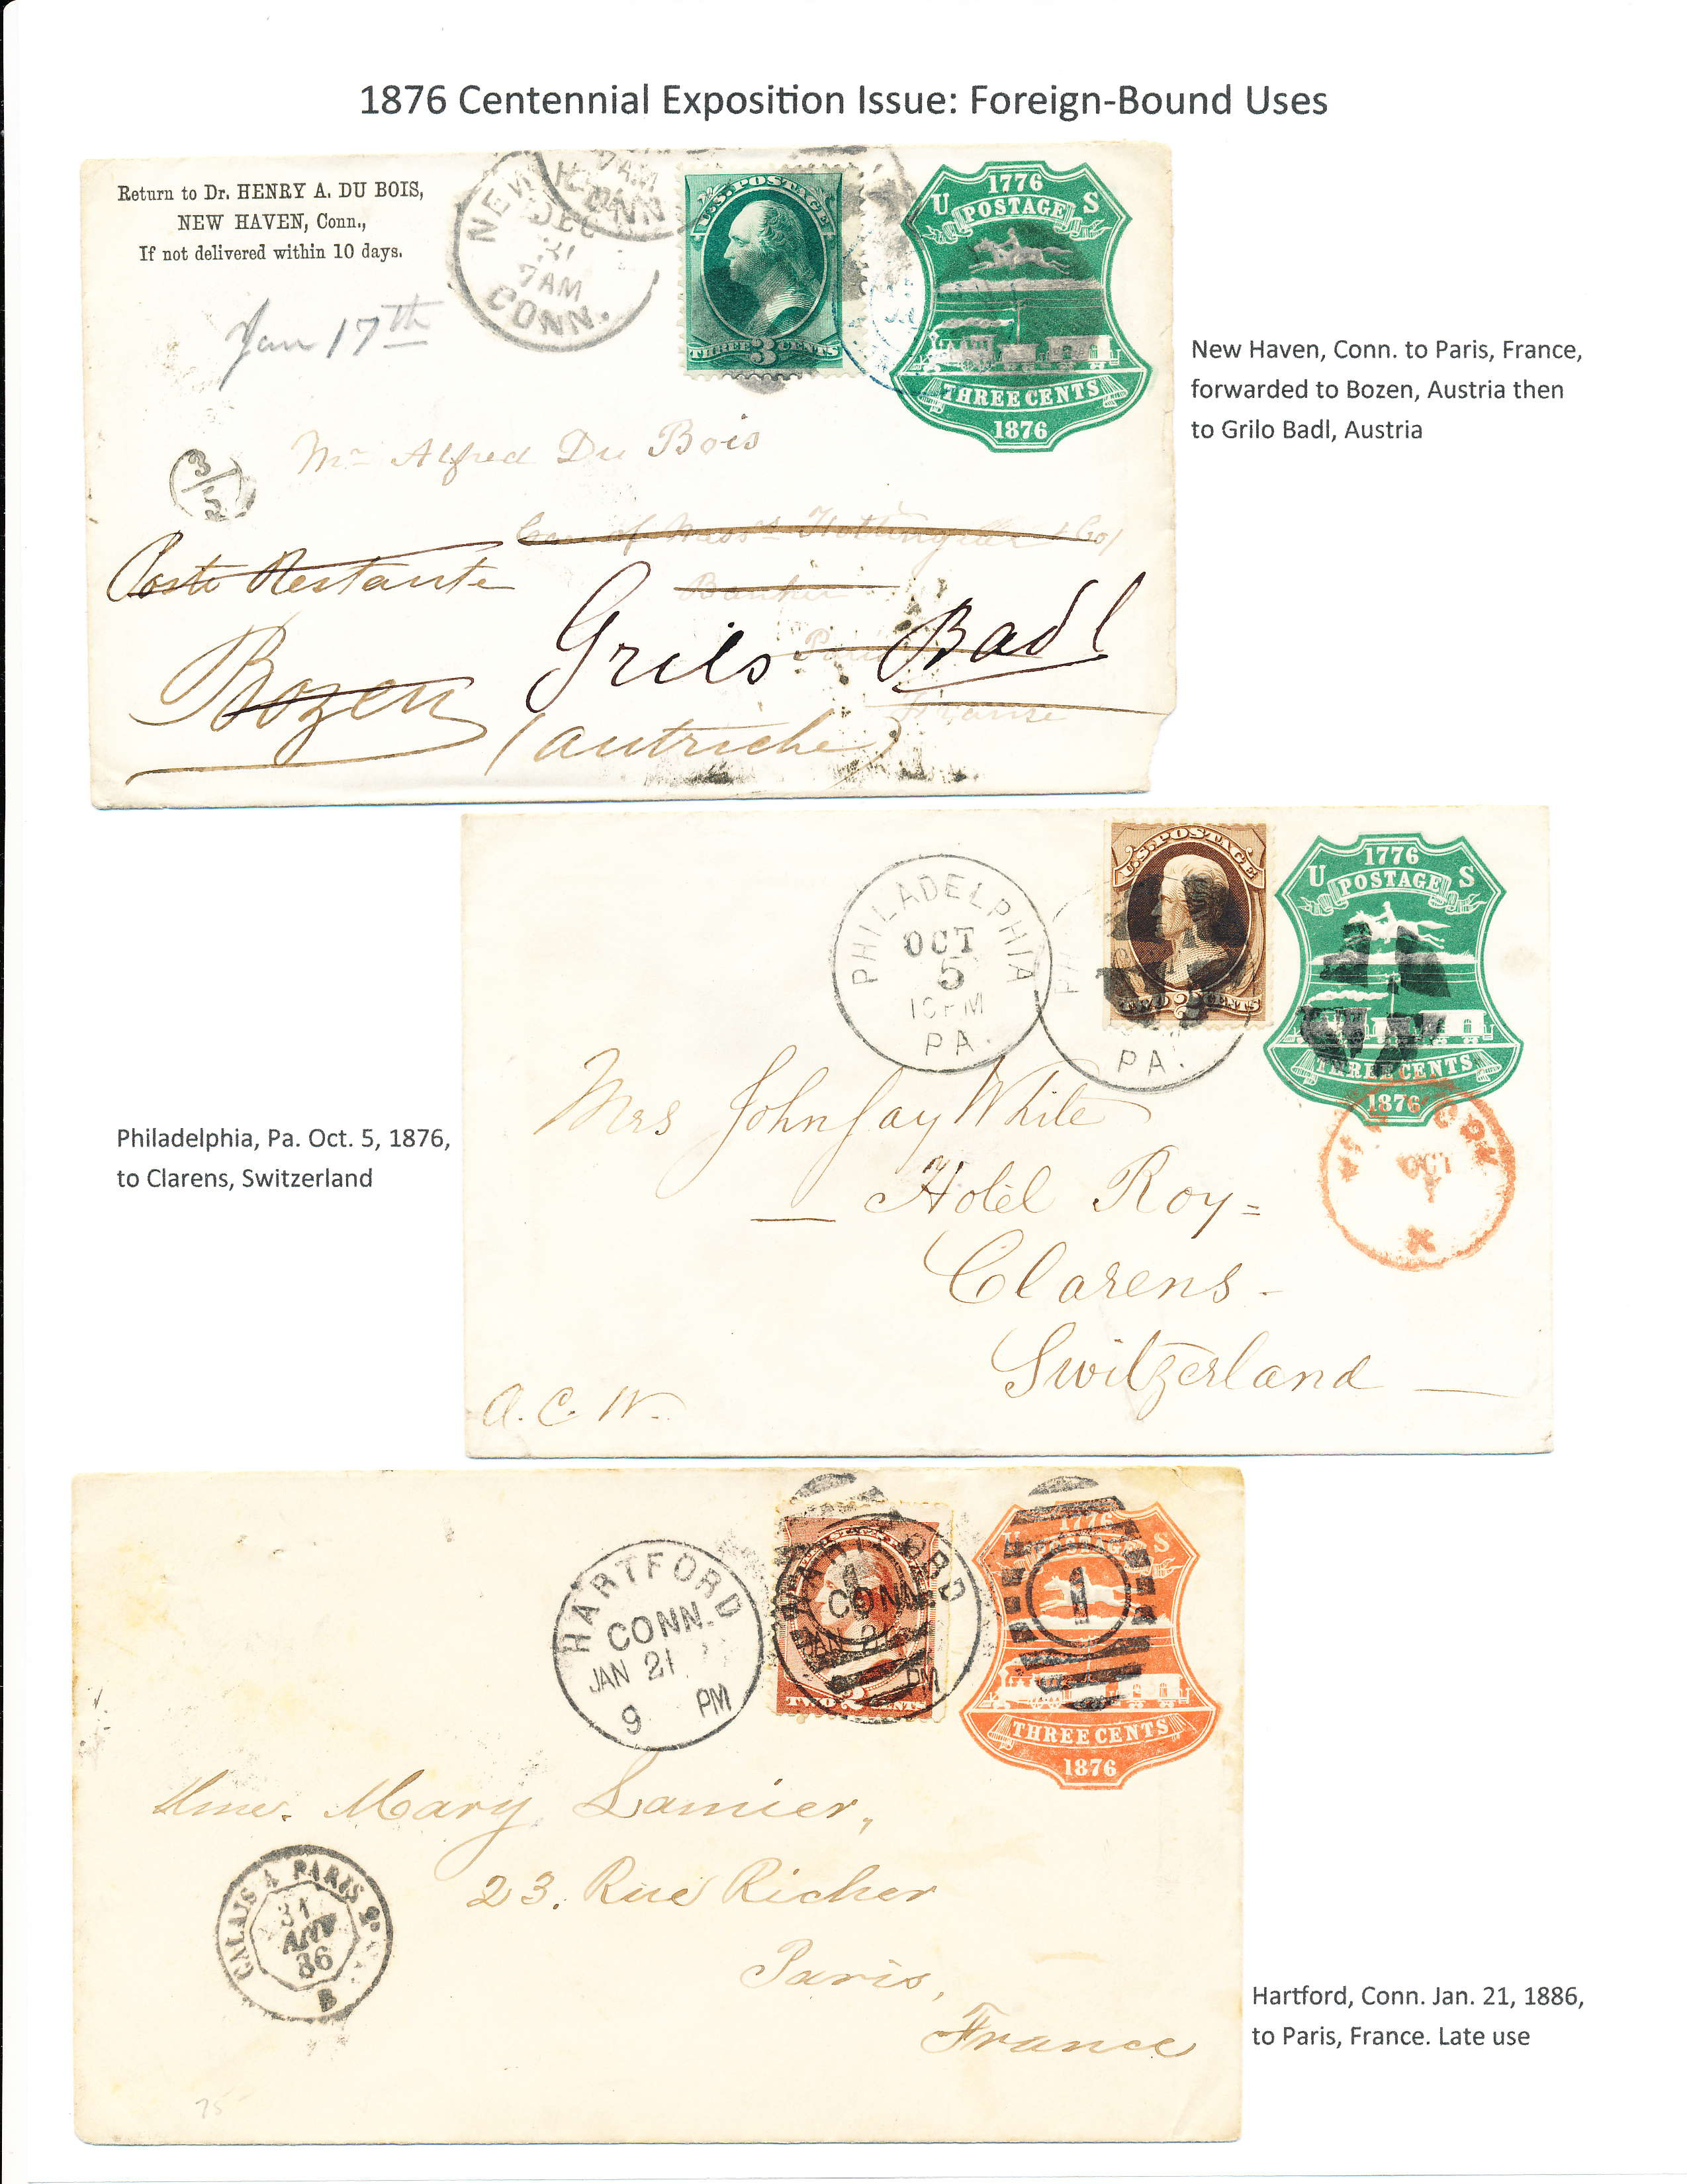 1876 Centennial Exposition Issue: Foreign-Bound Uses
Return to Dr. HENRY A. DU BOIS,
NEW HAVEN, Conn.,
If not delivered within 10 days.
Jan 17th
NEW
DEC
31
7AM
CONN.
7AM
CONN
U.S. POSTAGE
THREE 3 CENTS
1776
U POSTAGE S
THREE CENTS
1876
New Haven, Conn. to Paris, France,
forwarded to Bozen, Austria then
to Grilo Badl, Austria
Mr Alfred Du Bois
Care of Mess
Poste Restante
Banker
Grils Badl
Bozen
France
(Autriche)
PHILADELPHIA
OCT
5
10PM
PA.
PA.
U.S. POSTAGE
TWO 2 CENTS
1776
U POSTAGE S
THREE CENTS
1876
OCT
Philadelphia, Pa. Oct. 5, 1876,
to Clarens, Switzerland
Mrs John Jay White
Hotel Roy=
Clarens-
Switzerland
A.C.W.
HARTFORD
CONN.
JAN 21
9 PM
CONN.
JAN 21
PM
TWO 2 CENTS
1776
U POSTAGE S
1
THREE CENTS
1876
Mme. Mary Lamier,
23. Rue Richer
Paris,
France
CALAIS A PARIS
31
86
B
75
Hartford, Conn. Jan. 21, 1886,
to Paris, France. Late use